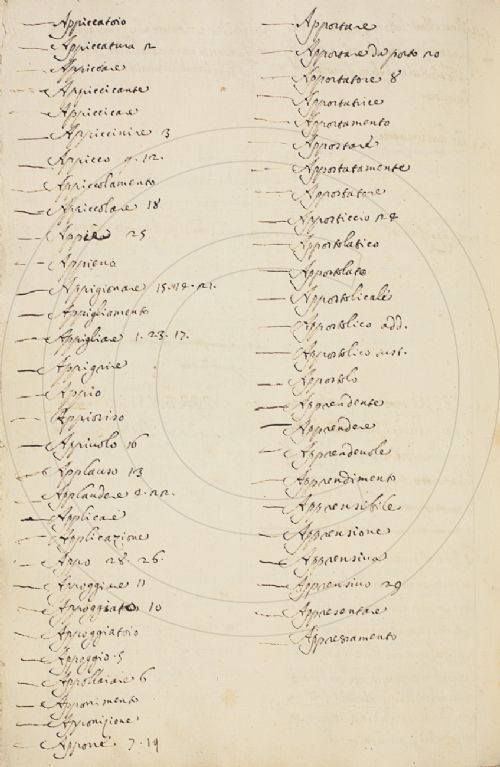 Appiccatoio
Appiccatura 2
Appiccare
Appiccicante
Appiccicare
Appiccinire 3
Appicco 9. 12.
Appiccolamento
Appiccolare 18
Appiè 25
Appieno
Appigionare 15. 14. 21.
Appigliamento
Appigliare 1. 23. 17.
Appigrire
Appio
Appioriso
Appiuolo 16
Applauso 13
Applaudere 4. 22.
Applicare
Applicazione
Appo 28. 26.
Appoggiare 11
Appoggiato 10
Appoggiatoio
Appoggio 5
Appollaiare 6
Apponimento
Apponizione
Apporre. 7. 19
Apportare
Apportare da porto 20
Apportatore 8
Apportatrice
Apportamento
Appostare
Appostatamente
Appostatore
Apposticcio 24
Appostolatico
Appostolato
Appostolicale
Appostolico add.
Appostolico sust.
Appostolo
Apprendente
Apprendere
Apprendevole
Apprendimento
Apprensibile
Apprensione
Apprensiva
Apprensivo 29
Appresentare
Appressamento